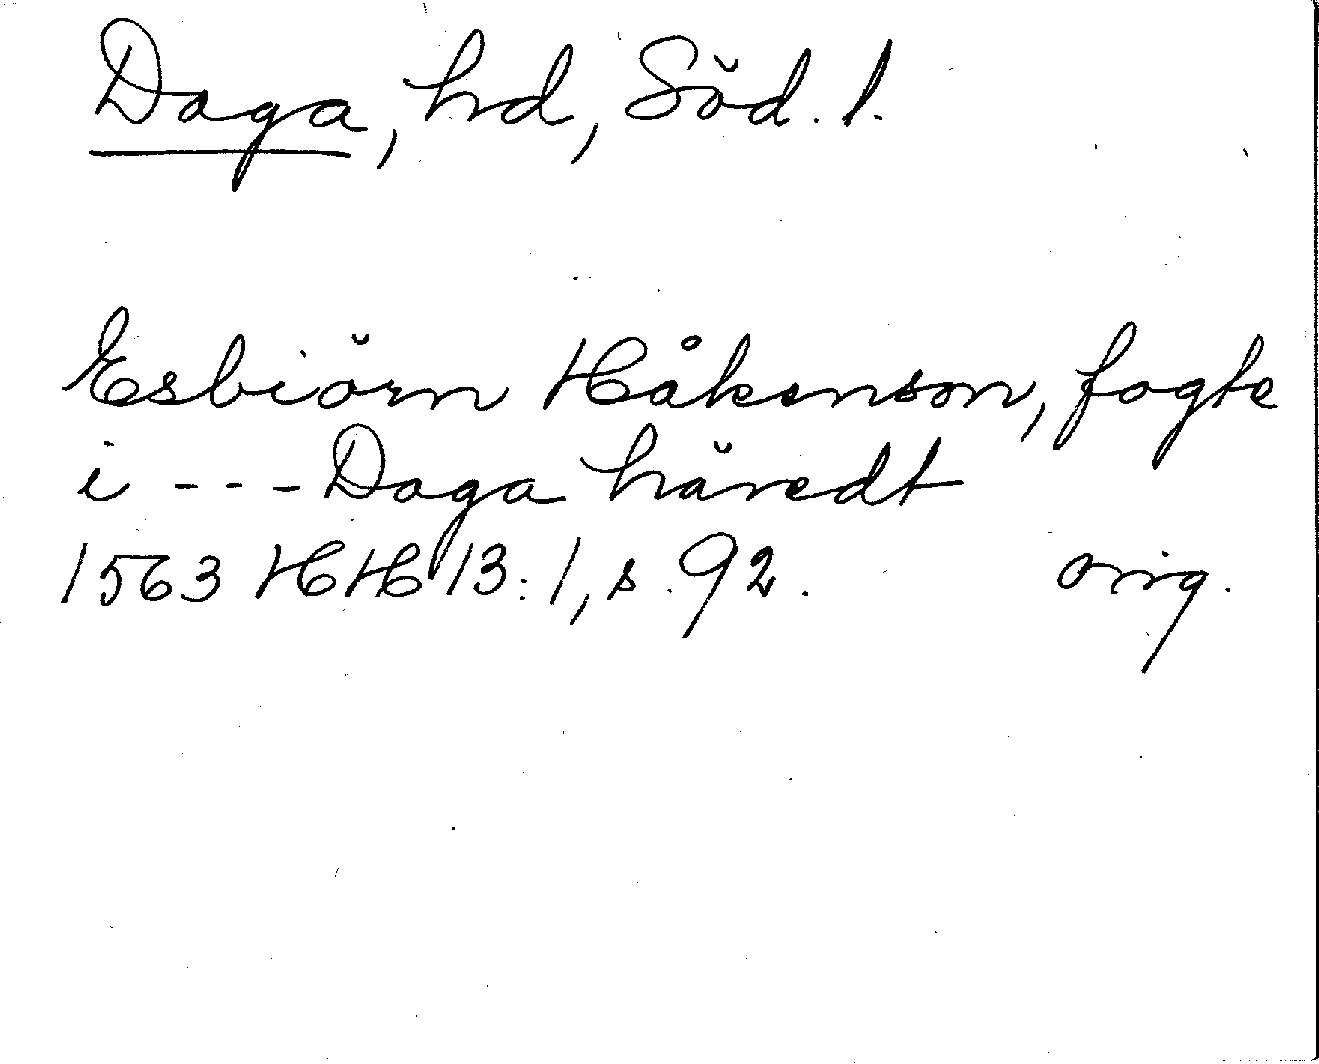 Daga, hd, Söd. l.
Esbiörn Håkenson, fogte
i --- Daga häredt
1563 HH 13:1, s. 92. orig.